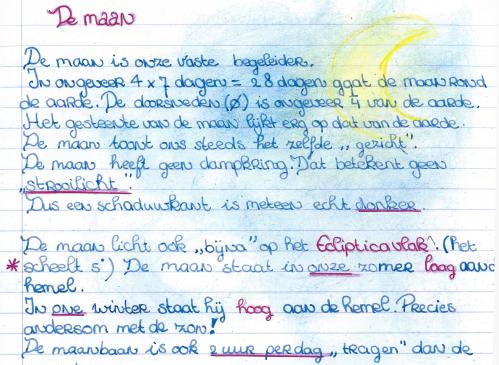 De maan
De maan is onze vaste begeleider.
In ongeveer 4 x 7 dagen = 28 dagen gaat de maan rond
de aarde. De doorsneden (ø) is ongeveer van de aarde.
Het gesteente van de maan lijkt erg op dat van de aarde.
De maan toont ons steeds het zelfde „gezicht".
De maan heeft geen dampkring. Dat betekent geen
„strooilicht".
Dus een schaduwkant is meteen echt donker.
De maan licht ook „bijna" op het Eclipticavlak. (het
* scheelt 5°) De maan staat in onze zomer laag aan
hemel.
In onze winter staat hij hoog aan de hemel. Precies
andersom met de zon!
De maanbaan is ook 2 uur per dag „tragen" dan de